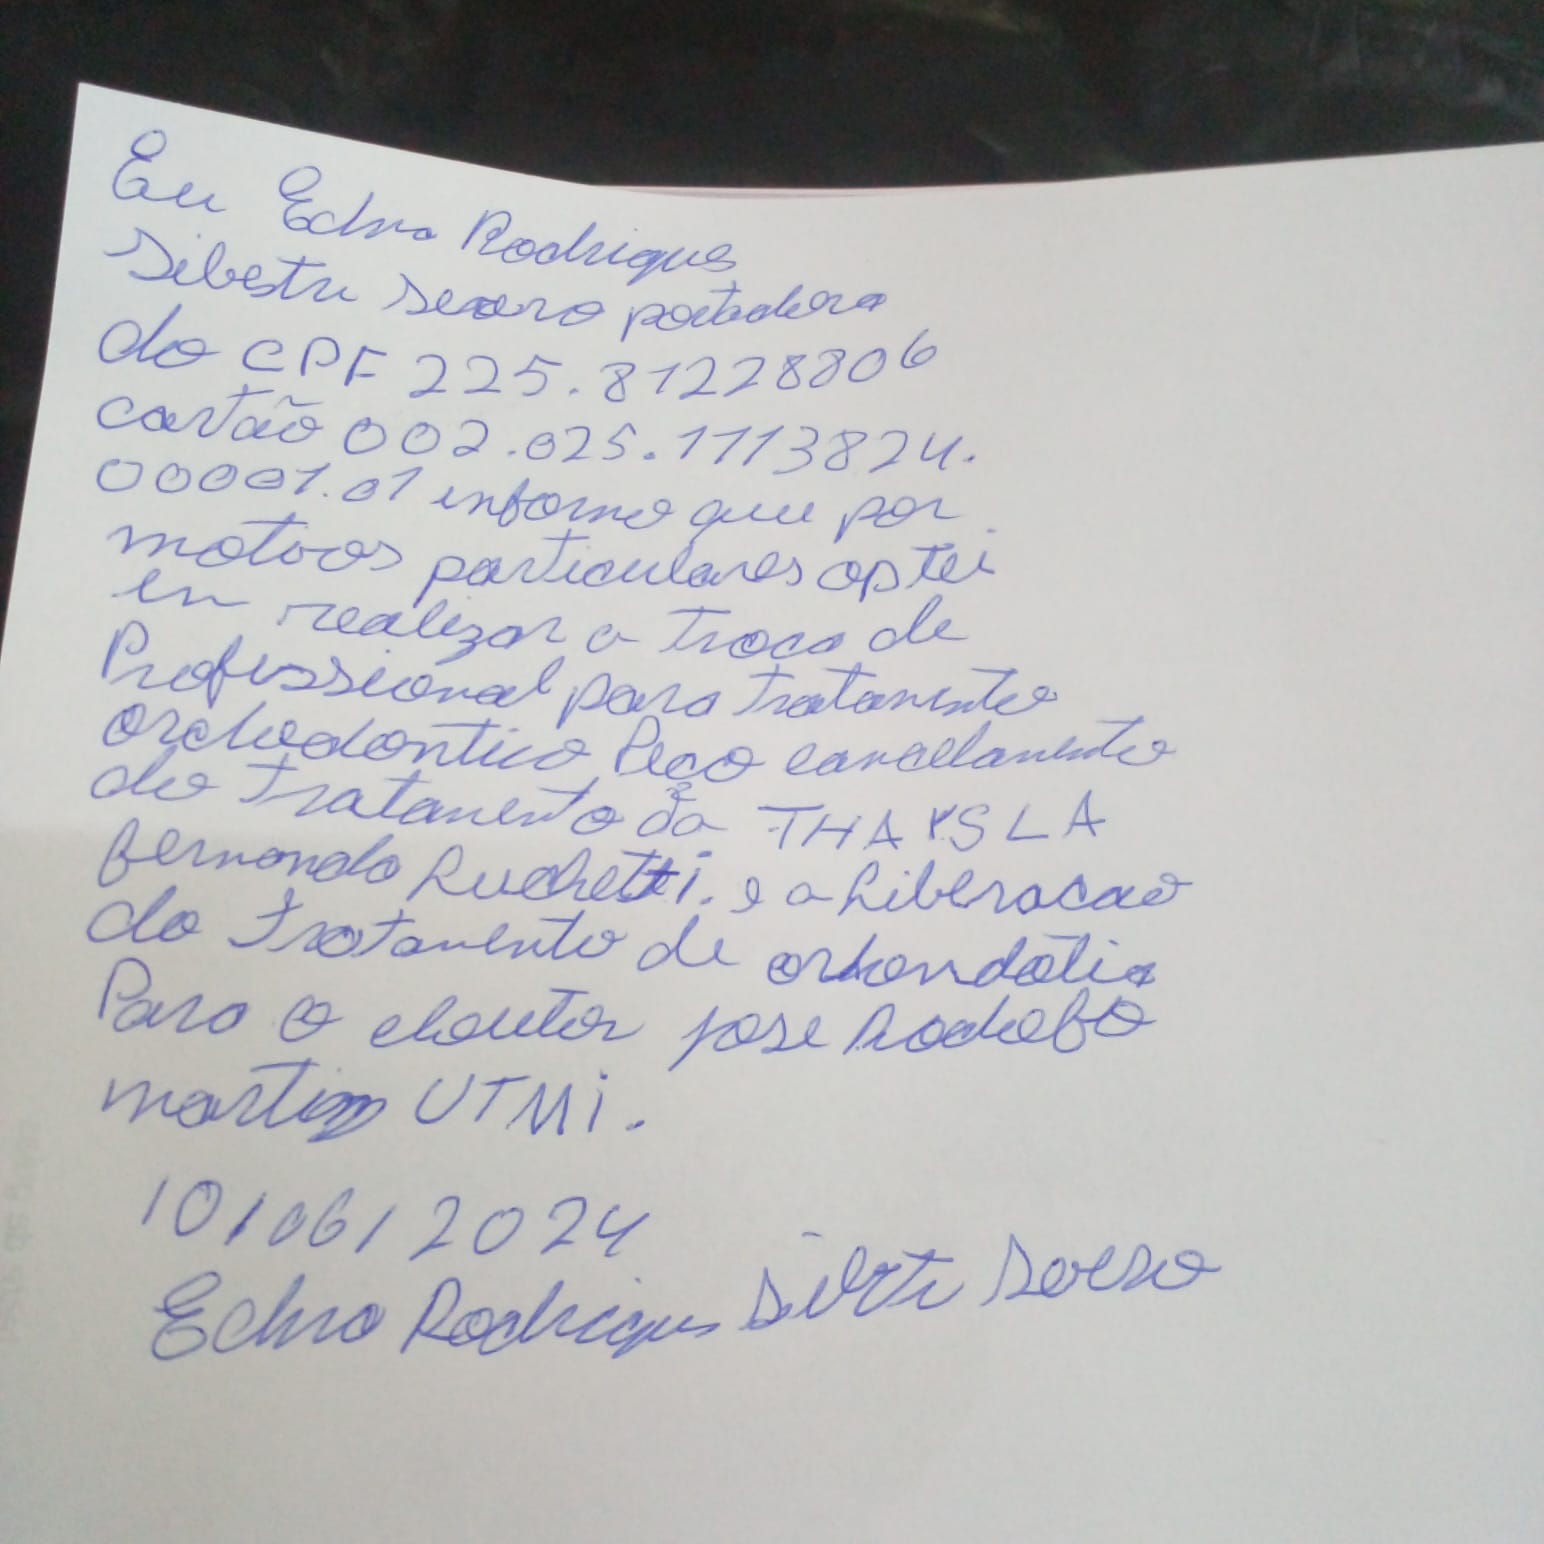 Eu Edna Rodrigues
Silvestre Severo portadora
do CPF 225.81228806
cartão 002.025.1113824.
00001.01 informo que por
motivos particulares optei
em realizar a troca de
Profissional para tratamento
orchodontico Peço cancelamento
do tratamento da THAYSLA
fernanda Luchetti. e a Liberacao
do tratamento de orkondótia
Para o doutor jose Rodolfo
martim UTMi.
10/06/2024
Edna Rodrigues